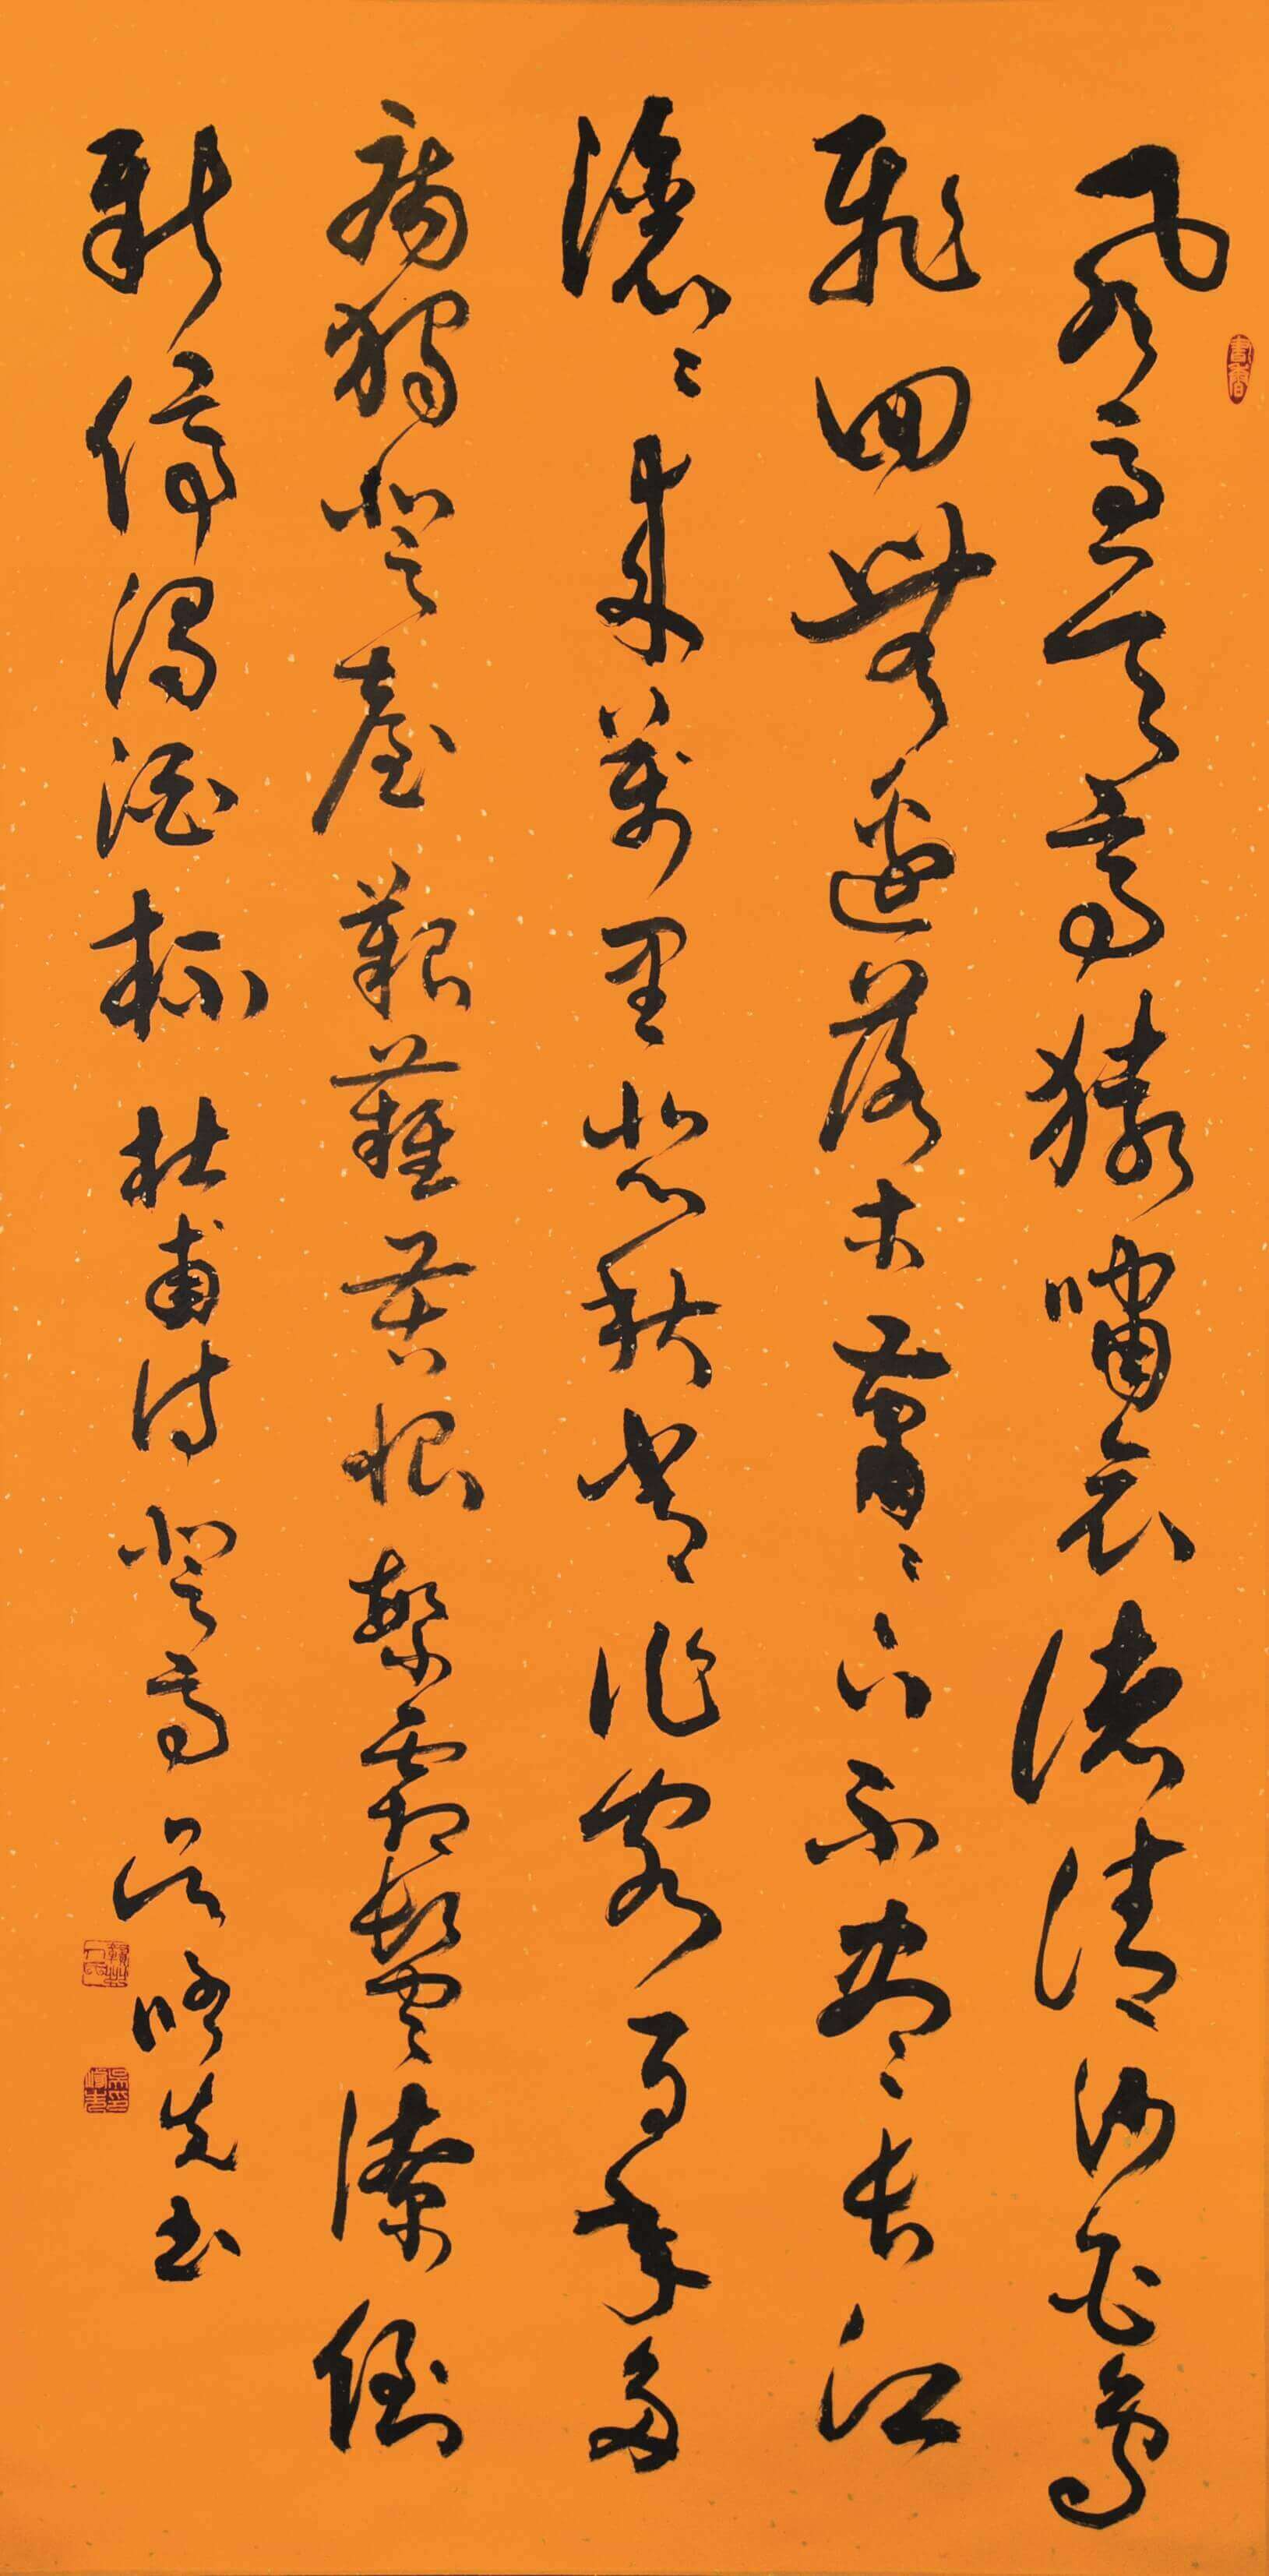 風急天高猿嘯哀渚清沙白鳥
飛回無邊落木蕭〻下不盡長江
滾〻來萬里悲秋常作客百年多
病獨登臺艱難苦恨繁霜鬢潦倒
新停濁酒杯 杜甫詩登高 吳先書